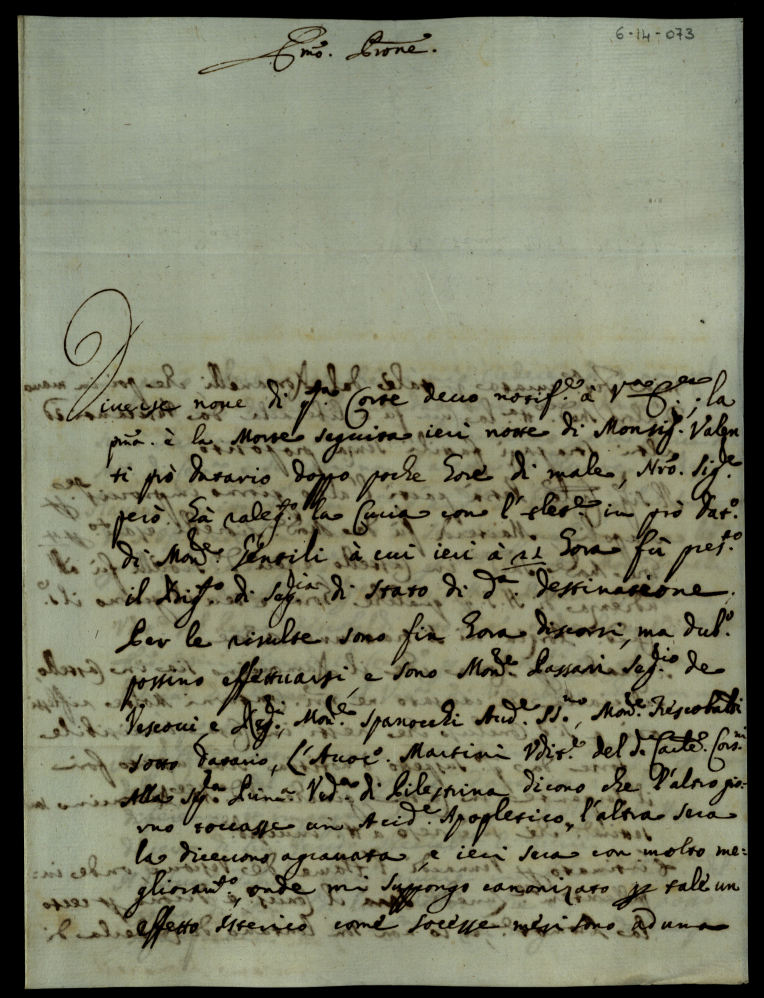 6-14-073
Emo. Prone.
Diverse nove di qta Corte devo notife. a Va Eza, la
pma. è la Morte seguita ieri notte di Monsigr. Valen
ti prò Datario doppo poche Hore di male, Nro. Sige.
però hà raleg.to la Curia con l'elese. in prò Dat.o
di Mone. Gentili à cui ieri à 21 Hora fù pres.to
il Bigto. di Segria di Stato di da. destinazione.
Per le risulte sono fin Hora discorsi, ma dub.o
possino effettuarsi, e sono Mone. Passari Segrio de
Vescovi e Regri, Mone. Spanocchi Aude. SSmo, Mone. Frescobaldi
sotto Datario, l'Avoco. Martini Vdite. del Se. Carde. Corsni
Alla Sigra Prina. Veda. di Pilestrina dicono che l'altro gio=
rno toccasse un Accide. Apopletico, l'altra sera
la dicevono agravata, e ieri sera con molto me=
glioramto, onde mi suppongo canonizato per tale un
effetto Isterico come socesse mesi sono ad una